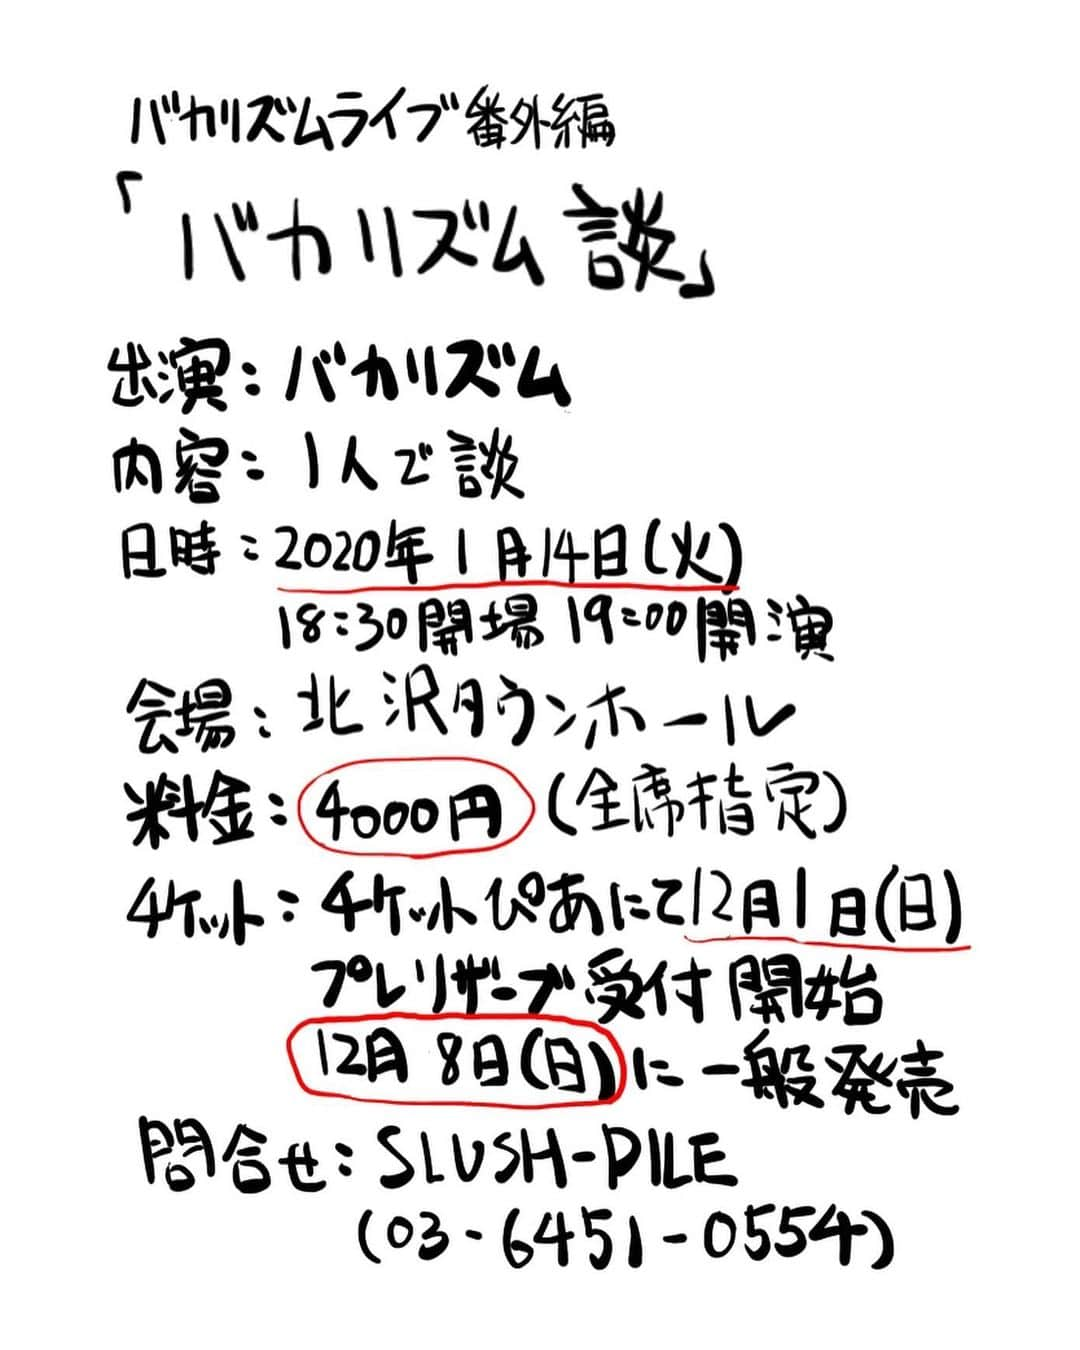 バカリズムライブ番外編
「バカリズム談」
出演：バカリズム
内容：1人で談
日時：2020年1月14日(火)
18:30開場 19:00開演
会場：北沢タウンホール
料金：4000円(全席指定)
チケット：チケットぴあにて12月1日(日)
プレリザーブ受付開始
12月8日(日)に一般発売
問合せ：SLUSH-PILE
(03-6451-0554)